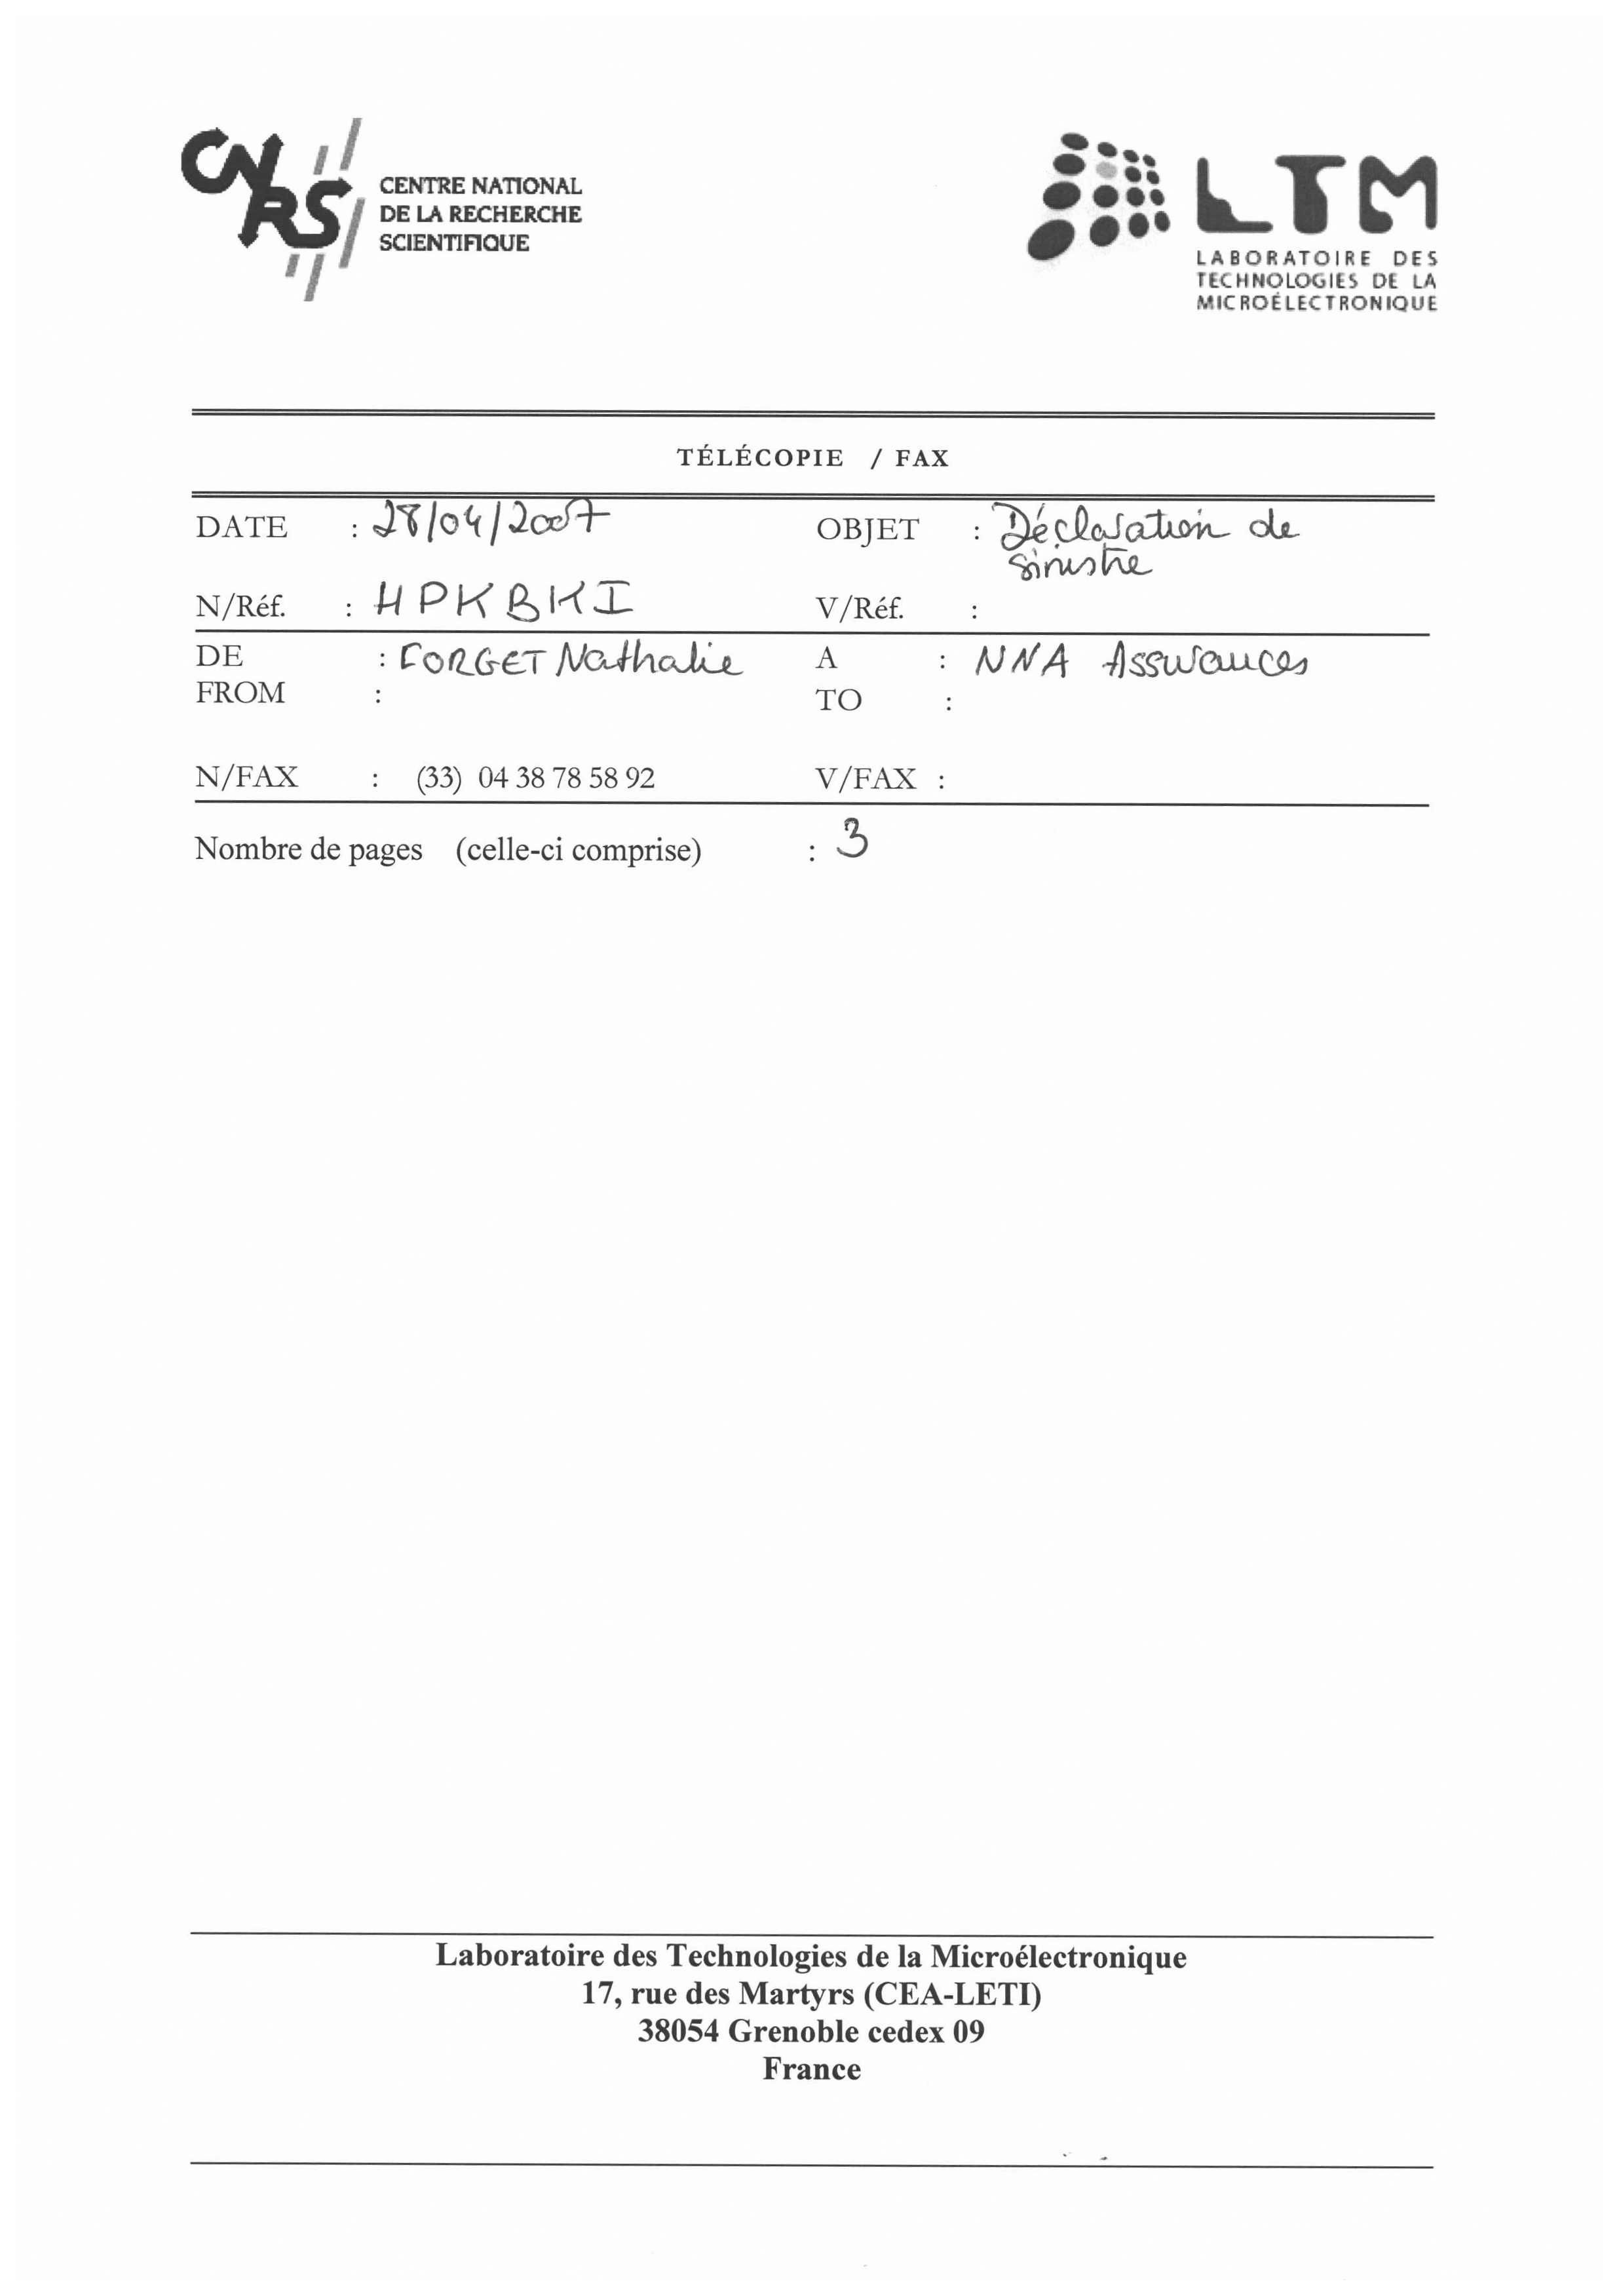 CNRS
CENTRE NATIONAL
DE LA RECHERCHE
SCIENTIFIQUE
LTM
LABORATOIRE DES
TECHNOLOGIES DE LA
MICROÉLECTRONIQUE
TÉLÉCOPIE / FAX
DATE : 28/04/2007 OBJET : Déclaration de
sinistre
N/Réf. : HPKBKI V/Réf. :
DE : FORGET Nathalie A : NNA Assurances
FROM : TO :
N/FAX : (33) 04 38 78 58 92 V/FAX :
Nombre de pages (celle-ci comprise) : 3
Laboratoire des Technologies de la Microélectronique
17, rue des Martyrs (CEA-LETI)
38054 Grenoble cedex 09
France